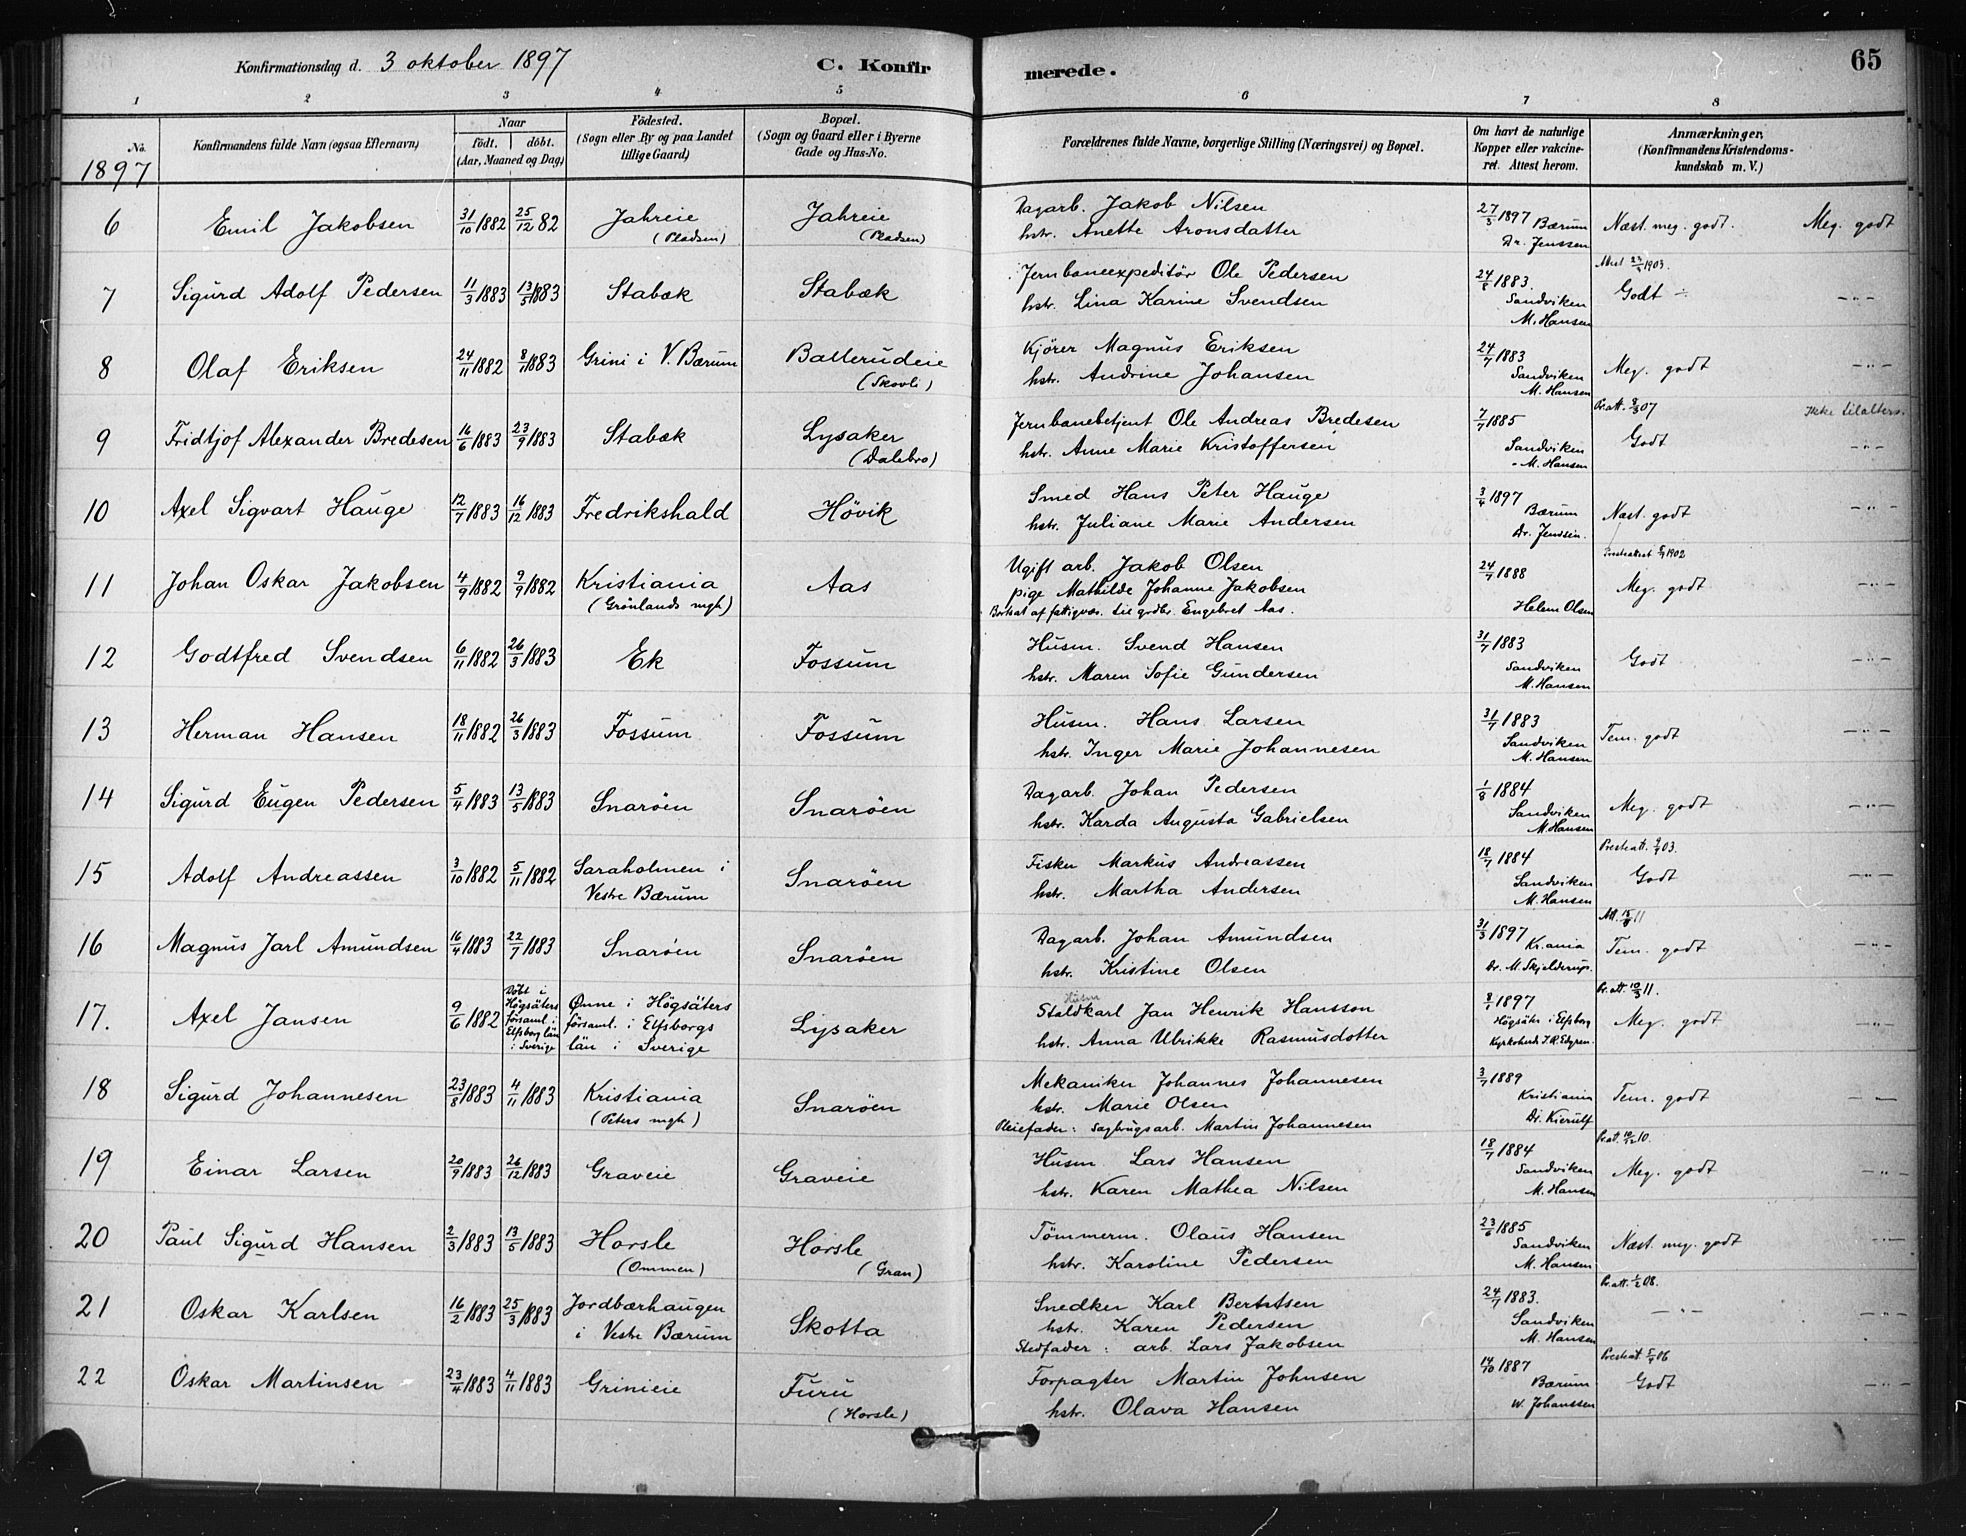 Konfirmationsdag d. 3 oktober 1897 C. Konfirmerede. 65
1 2 3 4 5 6 7 8
No. Konfirmandens fulde Navn (ogsaa Efternavn) Naar födt. döbt. (Aar, Maaned og Dag) Födested. (Sogn eller By og paa Landet tillige Gaard) Bopæl. (Sogn og Gaard eller i Byerne Gade og Hus-No. Forældrenes fulde Navne, borgerlige Stilling (Næringsvei) og Bopæl. Om havt de naturlige Kopper eller vakcineret. Attest herom. Anmærkninger, (Konfirmandens Kristendomskundskab m. V.)
1897
6 Emil Jakobsen 31/10 1882 25/12 82 Jahreie (Pladsen) Jahreie (Pladsen) Dagarb. Jakob Nilsen
hstr. Anette Aronsdatter 27/3 1897 Bærum Dr. Jenssen Næst. meg. godt. Meg. godt
7 Sigurd Adolf Pedersen 11/3 1883 13/5 1883 Stabæk Stabæk Jernbaneexpeditör Ole Pedersen
hstr. Lina Karine Svendsen 24/8 1883. Sandviken M. Hansen Attest 1903. Godt ÷ -"-
8 Olaf Eriksen 24/11 1882 8/1 1883 Grini i V. Bærum Ballerudeie (Skovli) Kjörer Magnus Eriksen
hstr. Andrine Johansen 24/7 1883 Sandviken M. Hansen Meg. godt -"-
9 Fridtjof Alexander Bredesen 16/6 1883 23/9 1883 Stabæk Lysaker (Dalebro) Jernbanebetjent Ole Andreas Bredesen
hstr. Anne Marie Kristoffersen 7/7 1885 Sandviken M. Hansen Pr.att. 07 Godt Ikke tilalters. -"-
10 Axel Sigvart Hauge 12/7 1883 16/12 1883 Fredrikshald Hövik Smed Hans Peter Hauge
hstr. Juliane Marie Andersen 3/4 1897 Bærum Dr. Jenssen. Næst. godt -"-
11 Johan Oskar Jakobsen 4/9 1882 9/9 1882 Kristiania (Grönlands mgh) Aas Ugift arb. Jakob Olsen
pige Mathilde Johanne Jakobsen
Bortsat af fattigvæs. til grdbr. Engebret Aas. 24/7 1888 Helene Olsen 1902 Meg. godt -"-
12 Godtfred Svendsen 6/11 1882 26/3 1883 Ek Fossum Husm. Svend Hansen
hstr. Maren Sofie Gundersen 31/7 1883 Sandviken M. Hansen Godt -"-
13 Herman Hansen 18/11 1882 26/3 1883 Fossum Fossum Husm. Hans Larsen
hstr. Inger Marie Johannesen 31/7 1883 Sandviken M. Hansen Tem. godt -"-
14 Sigurd Eugen Pedersen 5/4 1883 13/5 1883 Snaröen Snaröen Dagarb. Johan Pedersen
hstr. Karda Augusta Gabrielsen 1/8 1884 Sandviken M. Hansen Meg. godt -"-
15 Adolf Andreassen 3/10 1882 5/11 1882 Saraholmen i Vestre Bærum Snaröen Fisker Markus Andreassen
hstr. Martha Andersen 18/7 1884 Sandviken M. Hansen Prestatt. 03. Godt -"-
16 Magnus Jarl Amundsen 16/4 1883 22/7 1883 Snaröen Snaröen Dagarb. Johan Amundsen
hstr. Kristine Olsen 31/3 1897 Kr.ania Dr. M. Skjelderup. Att. 11 Tem. godt -"-
17. Axel Jansen 9/6 1882 Döbt i Högsäters församl. i Elfsborg län i Sverige Önne i Högsäters församl. i Elfsborgs län i Sverige Lysaker Husm Staldkarl Jan Henrik Hansson
hstr. Anna Ulrikke Rasmusdotter 1897 Högsäter i Elfsborg Kyrkoherde Pr.att. 11. Meg. godt -"-
18 Sigurd Johannesen 23/8 1883 4/11 1883 Kristiania (Peters mgh) Snaröen Mekaniker Johannes Johannesen
hstr. Marie Olsen
Pleiefader: Sagbrugsarb. Martin Johannesen 3/7 1889 Kristiania Dr. Kierulf Tem. godt -"-
19 Einar Larsen 20/9 1883 26/12 1883 Graveie Graveie Husm Lars Hansen
hstr. Karen Mathea Nilsen 18/7 1884 Sandviken M. Hansen Pr.att. 10/12 10. Meg. godt -"-
20 Paul Sigurd Hansen 2/3 1883 13/5 1883 Horsle (Ommen) Horsle (Gran) Tömmerm. Olaus Hansen
hstr. Karoline Pedersen 23/6 1885 Sandviken M. Hansen Næst. meg. godt -"-
21 Oskar Karlsen 16/2 1883 25/3 1883 Jordbærhaugen i Vestre Bærum Skotta Snedker Karl Berntsen
hstr. Karen Pedersen
Stedfader: arb. Lars Jakobsen 24/7 1883. Sandviken M. Hansen Pr.att. 1/2 08. -"- -"-
22 Oskar Martinsen 23/4 1883 4/11 1883 Grinieie Furu (Horsle) Forpagter Martin Johnsen
hstr. Olava Hansen 14/10 1887 Bærum W. Johanssen Prestatt. 06 Godt -"-